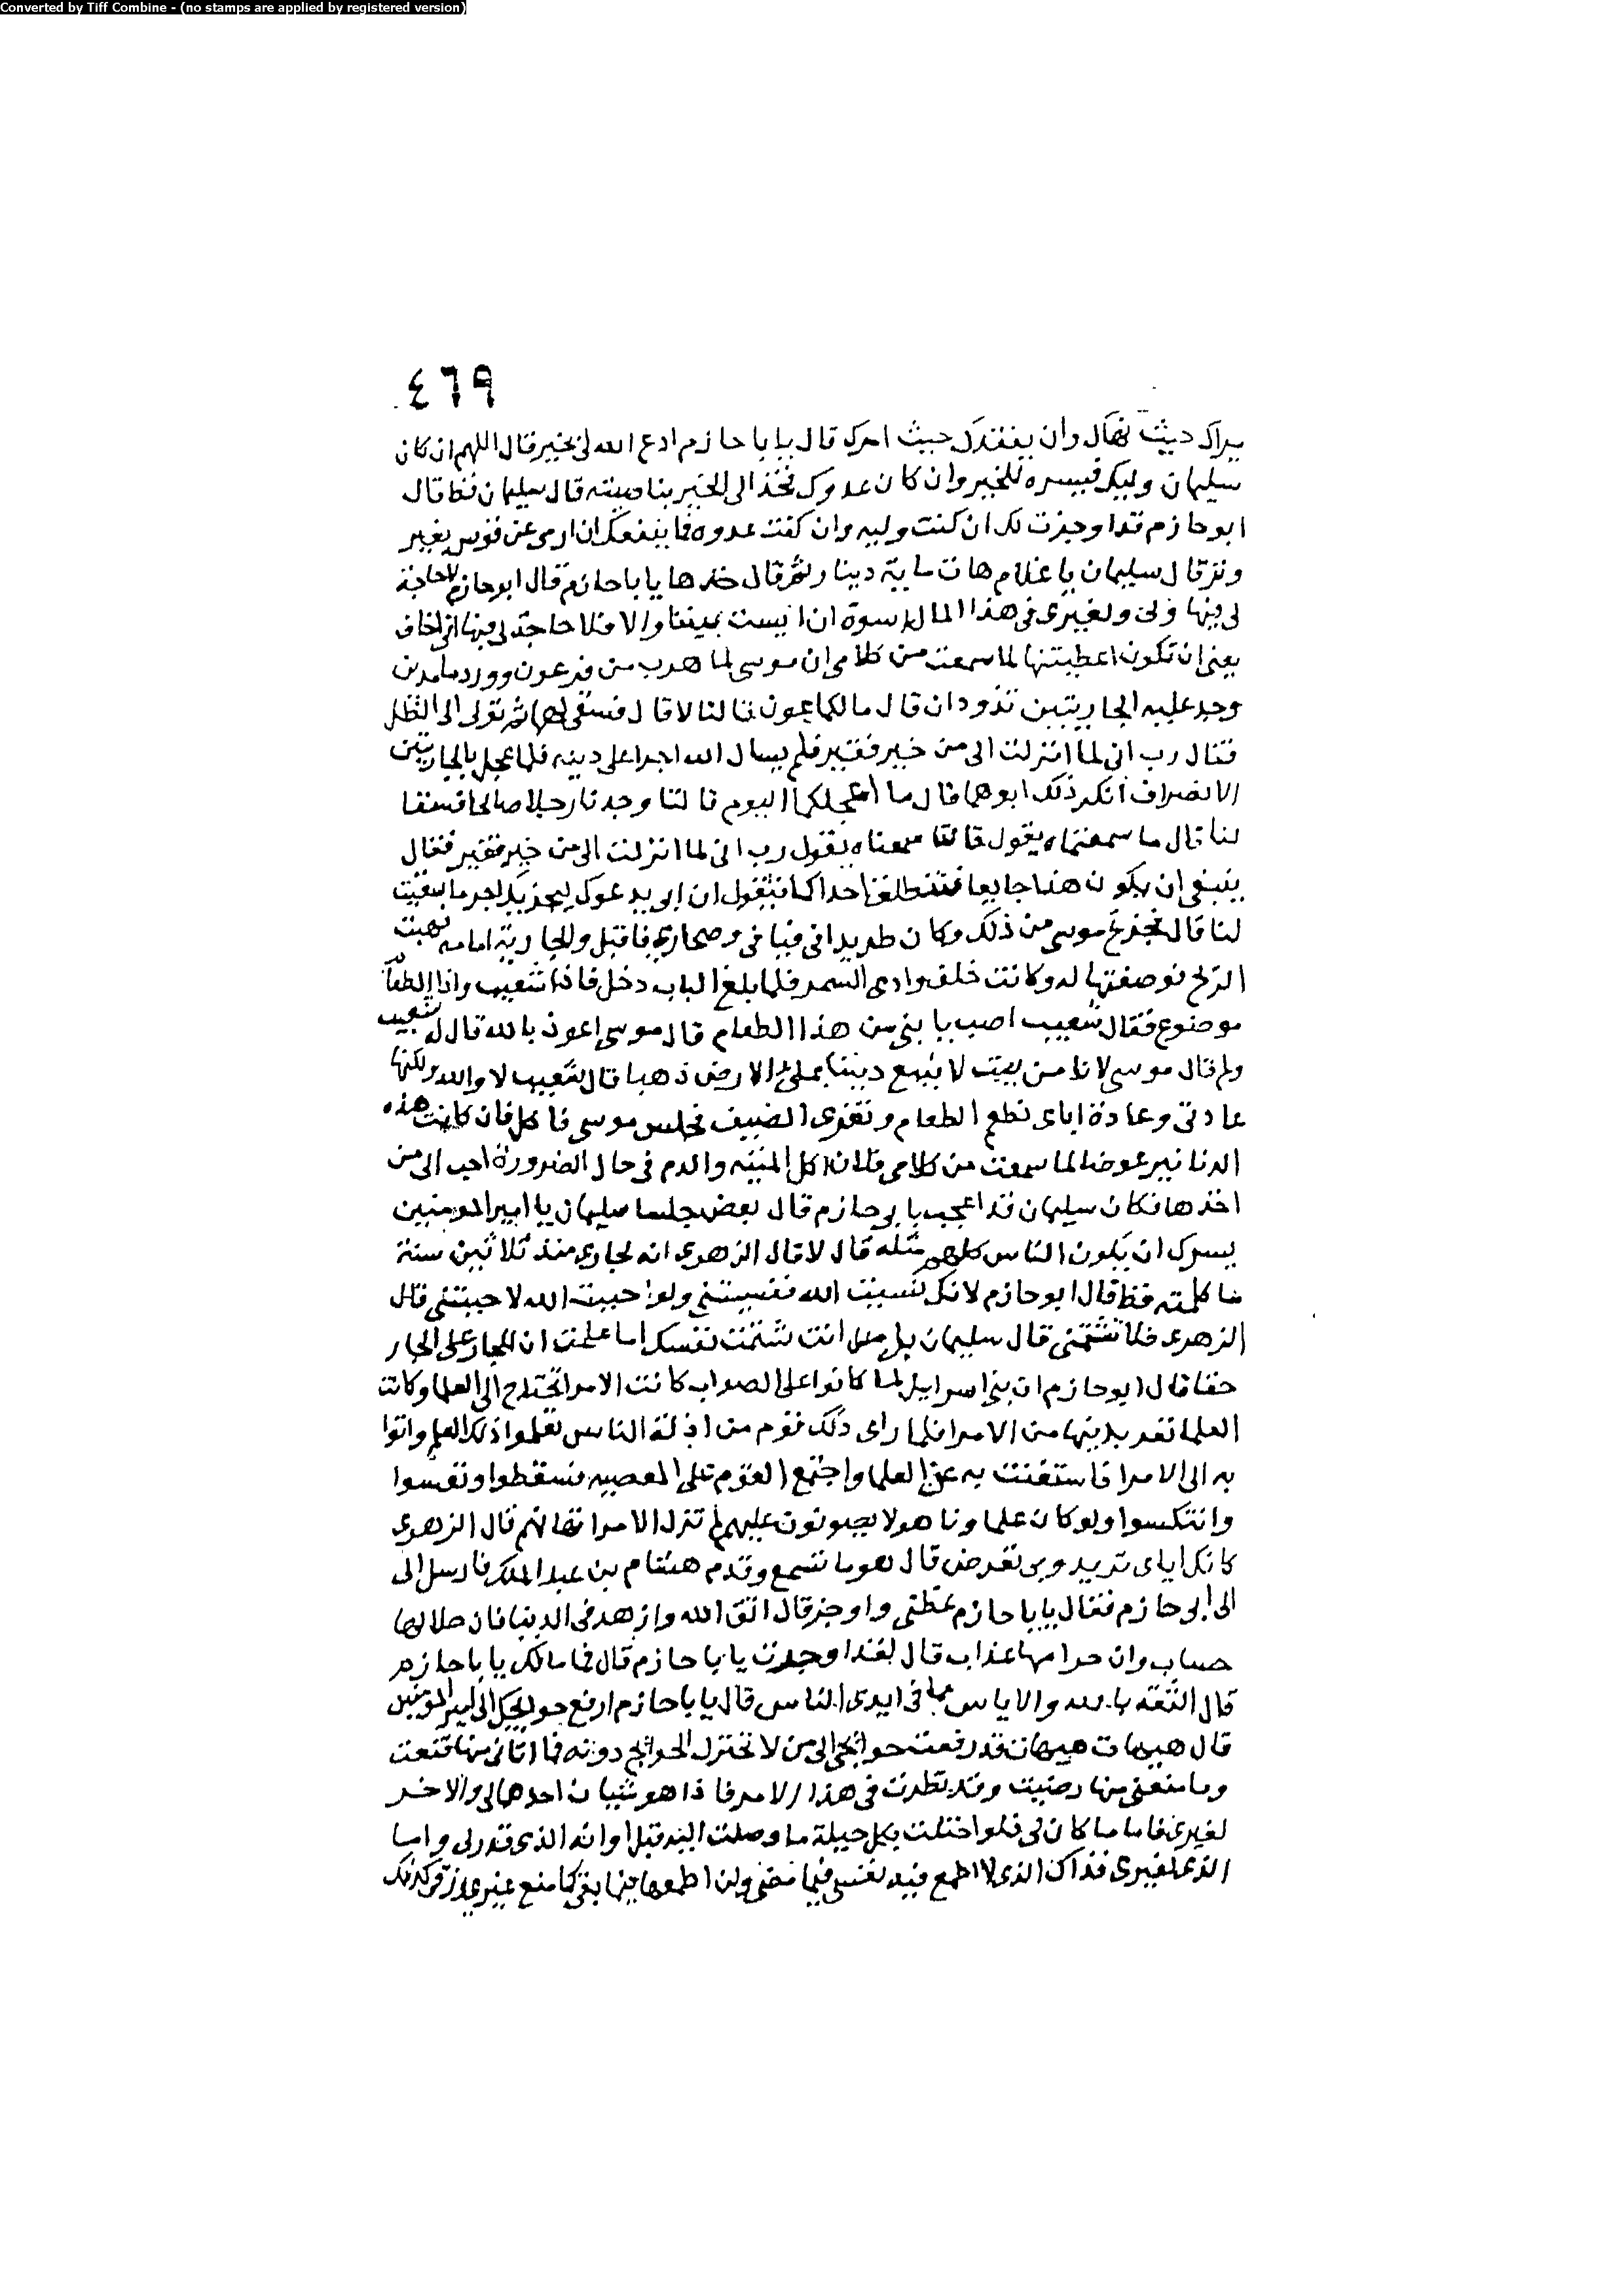 Converted by Tiff Combine - (no stamps are applied by registered version)
٤٦٩
يراك حيث نهاك وان يفقدك حيث امرك قال يا با حازم ادع الله لى بخير قال اللهم ان كان
سليمان وليك فيسره للخير وان كان عدوك فخذ الى الخير بناصيته قال سليمان قط قال
ابو حازم قد اوجزت لك ان كنت وليه وان كنت عدوه فما ينفعك ان ارمى عن قوس بغير
وتر قال سليمان يا غلام هات ماية دينار ثم قال خذها يا با حازم قال ابو حازم لا حاجة
لى فيها ولى ولغيرى فى هذا المال اسوة ان اسيت بيننا والا فلا حاجة لى فيها انى اخاف
يعنى ان تكون اعطيتنها لما سمعت من كلامى ان موسى لما هرب من فرعون وورد ما مدين
وجد عليه الجاريتين تذودان قال مالكما عون قالتا لا قال فسقى لهما ثم تولى الى الظل
فقال رب انى لما انزلت الى من خير فقير فلم يسال الله اجرا على دينه فلما عجل بالجاريتين
الانصراف انكر ذلك ابوهما قال ما اعجلكما اليوم قالتا وجدنا رجلا صالحا فسقا
لنا قال ما سمعتماه يقول قالتا سمعناه يقول رب انى لما انزلت الى من خير فقير فقال
ينبغى ان يكون هذا جايعا فتنطلق احداكما فتقول ان ابى يدعوك ليجزيك اجر ما سقيت
لنا قال فجزع موسى من ذلك وكان طريدا فى فيافى وصحارى فاقبل والجارية امامه فهبت
الريح فوصفتها له وكانت خلف وادى السمر فلما بلغ الباب دخل فاذا شعيب واذا الطعام
موضوع فقال شعيب اصب يا بنى من هذا الطعام قال موسى اعوذ بالله قال له شعيب
ولم قال موسى لانا من بيت لا يبيع ديننا بملئ الارض ذهبا قال شعيب لا والله ولكنها
عادتى وعادة اباى نطعم الطعام ونقرى الضيف فجلس موسى فاكل فان كانت هذه
الدنانير عوضا لما سمعت من كلامى فلان اكل الميتة والدم فى حال الضرورة احب الى من
اخذها فكان سليمان قد اعجب بابى حازم قال بعض جلسا سليمان يا امير المومنين
يسرك ان يكون الناس كلهم مثله قال لا قال الزهرى انه لجارى منذ ثلاثين سنة
ما كلمته قط قال ابو حازم لانك نسيت الله فنسيتنى ولو احببت الله لاحببتنى قال
الزهرى فلا تشتمنى قال سليمان بل انت شتمت نفسك اما علمت ان للجار على الجار
حقا قال ابو حازم ان بنى اسراييل لما كانوا على الصواب كانت الامرا تحتاج الى العلما وكانت
العلما تفر بدينها من الامرا فلما راى ذلك قوم من اذلة الناس تعلموا ذلك العلم واتوا
به الى الامرا فاستغنت به عن العلما واجتمع القوم على المعصيه فسقطوا وتعسوا
وانتكسوا ولو كان علماونا هولا يصونون علمهم لم تزل الامرا تهابهم قال الزهرى
كانك اياى تريد وبى تعرض قال هو ما تسمع وقدم هشام بن عبد الملك فارسل الى
الى ابو حازم فقال يا با حازم عظنى واوجز قال اتق الله وازهد فى الدنيا فان حلالها
حساب وان حرامها عذاب قال لقد اوجزت يا با حازم قال فما مالك يا با حازم
قال الثقة بالله والاياس مما فى ايدى الناس قال يا با حازم ارفع حوايجك الى امير المومنين
قال هيهات هيهات قد رفعت حوايجى الى من لا تختزل الحوايج دونه فما اتانى منها قنعت
وما منعنى منها رضيت وقد نظرت فى هذا الامر فاذا هو شيان احدهما لى والاخر
لغيرى فاما ما كان لى فلو احتلت بكل حيلة ما وصلت اليه قبل اوانه الذى قدر لى واما
الذى لغيرى فذاك الذى لا اطمع فيه نفسى فيما مضى ولن اطمعها فيما بقى كما منع غيرى رزقى كذلك